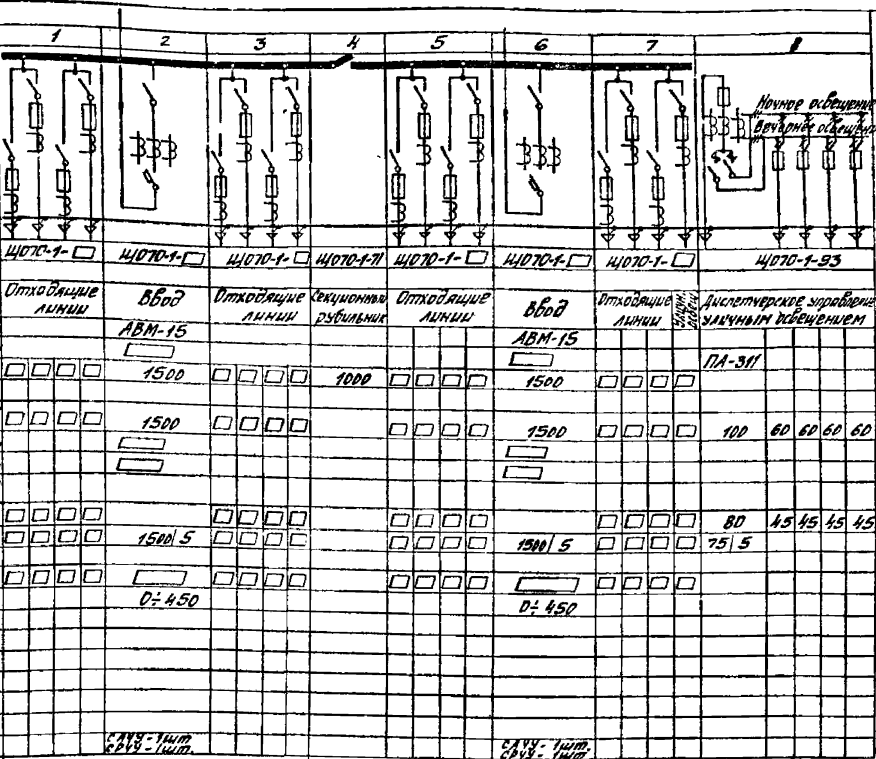 1 2 3 4 5 6 7 8
Ночное освещение
Вечернее освещени
ЩО70-1- ЩО70-1- ЩО70-1- ЩО70-1-71 ЩО70-1- ЩО70-1- ЩО70-1- ЩО70-1-93
Отходящие линии
Ввод
Отходящие линии
Секционный рубильник
Отходящие линии
Ввод
Отходящие линии
Диспетчерское управление
уличным освещением
АВМ-15 АВМ-15
ПА-311
1500 1000 1500
1500 1500 100 60 60 60 60
80 45 45 45 45
1500/5 1500/5 75/5
0÷450 0÷450
САЧУ-1шт. САЧУ-1шт.
СРЧУ-1шт. СРЧУ-1шт.